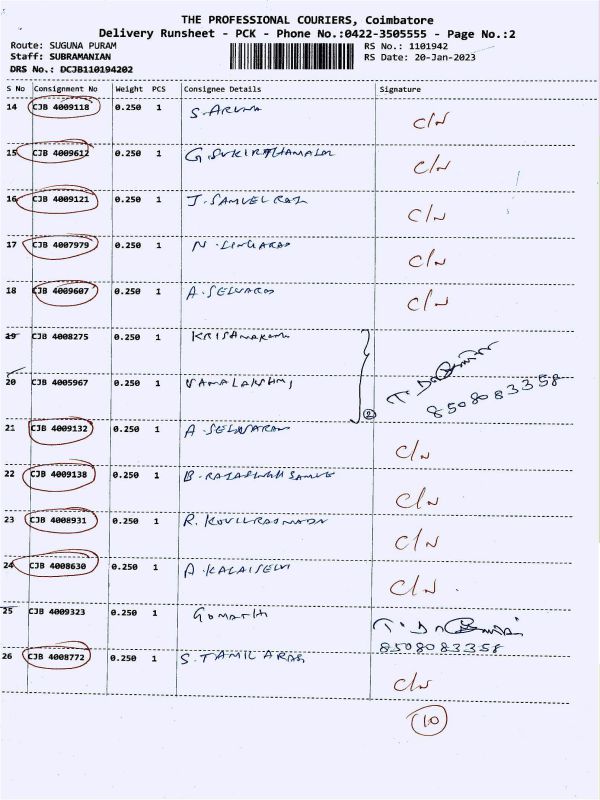 THE PROFESSIONAL COURIERS, Coimbatore
Delivery Runsheet - PCK - Phone No.:0422-3505555 - Page No.:2
Route: SUGUNA PURAM RS No.: 1101942
Staff: SUBRAMANIAN RS Date: 20-Jan-2023
DRS No.: DCJB110194202
S No Consignment No Weight PCS Consignee Details Signature
14 CJB 4009118 0.250 1 S. ARUNA C/N
15 CJB 4009612 0.250 1 G. C/N
16 CJB 4009121 0.250 1 J. SAMUEL RAJ C/N
17 CJB 4007979 0.250 1 N. LINGARAJ C/N
18 CJB 4009607 0.250 1 A. SELVARAJ C/N
19 CJB 4008275 0.250 1
20 CJB 4005967 0.250 1 8508083358
2
21 CJB 4009132 0.250 1 A. C/N
22 CJB 4009138 0.250 1 B. C/N
23 CJB 4008931 0.250 1 R. C/N
24 CJB 4008630 0.250 1 A. KALAISELVI C/N
25 CJB 4009323 0.250 1 GOMATHI
8508083358
26 CJB 4008772 0.250 1 S. TAMIL ARAS C/N
10